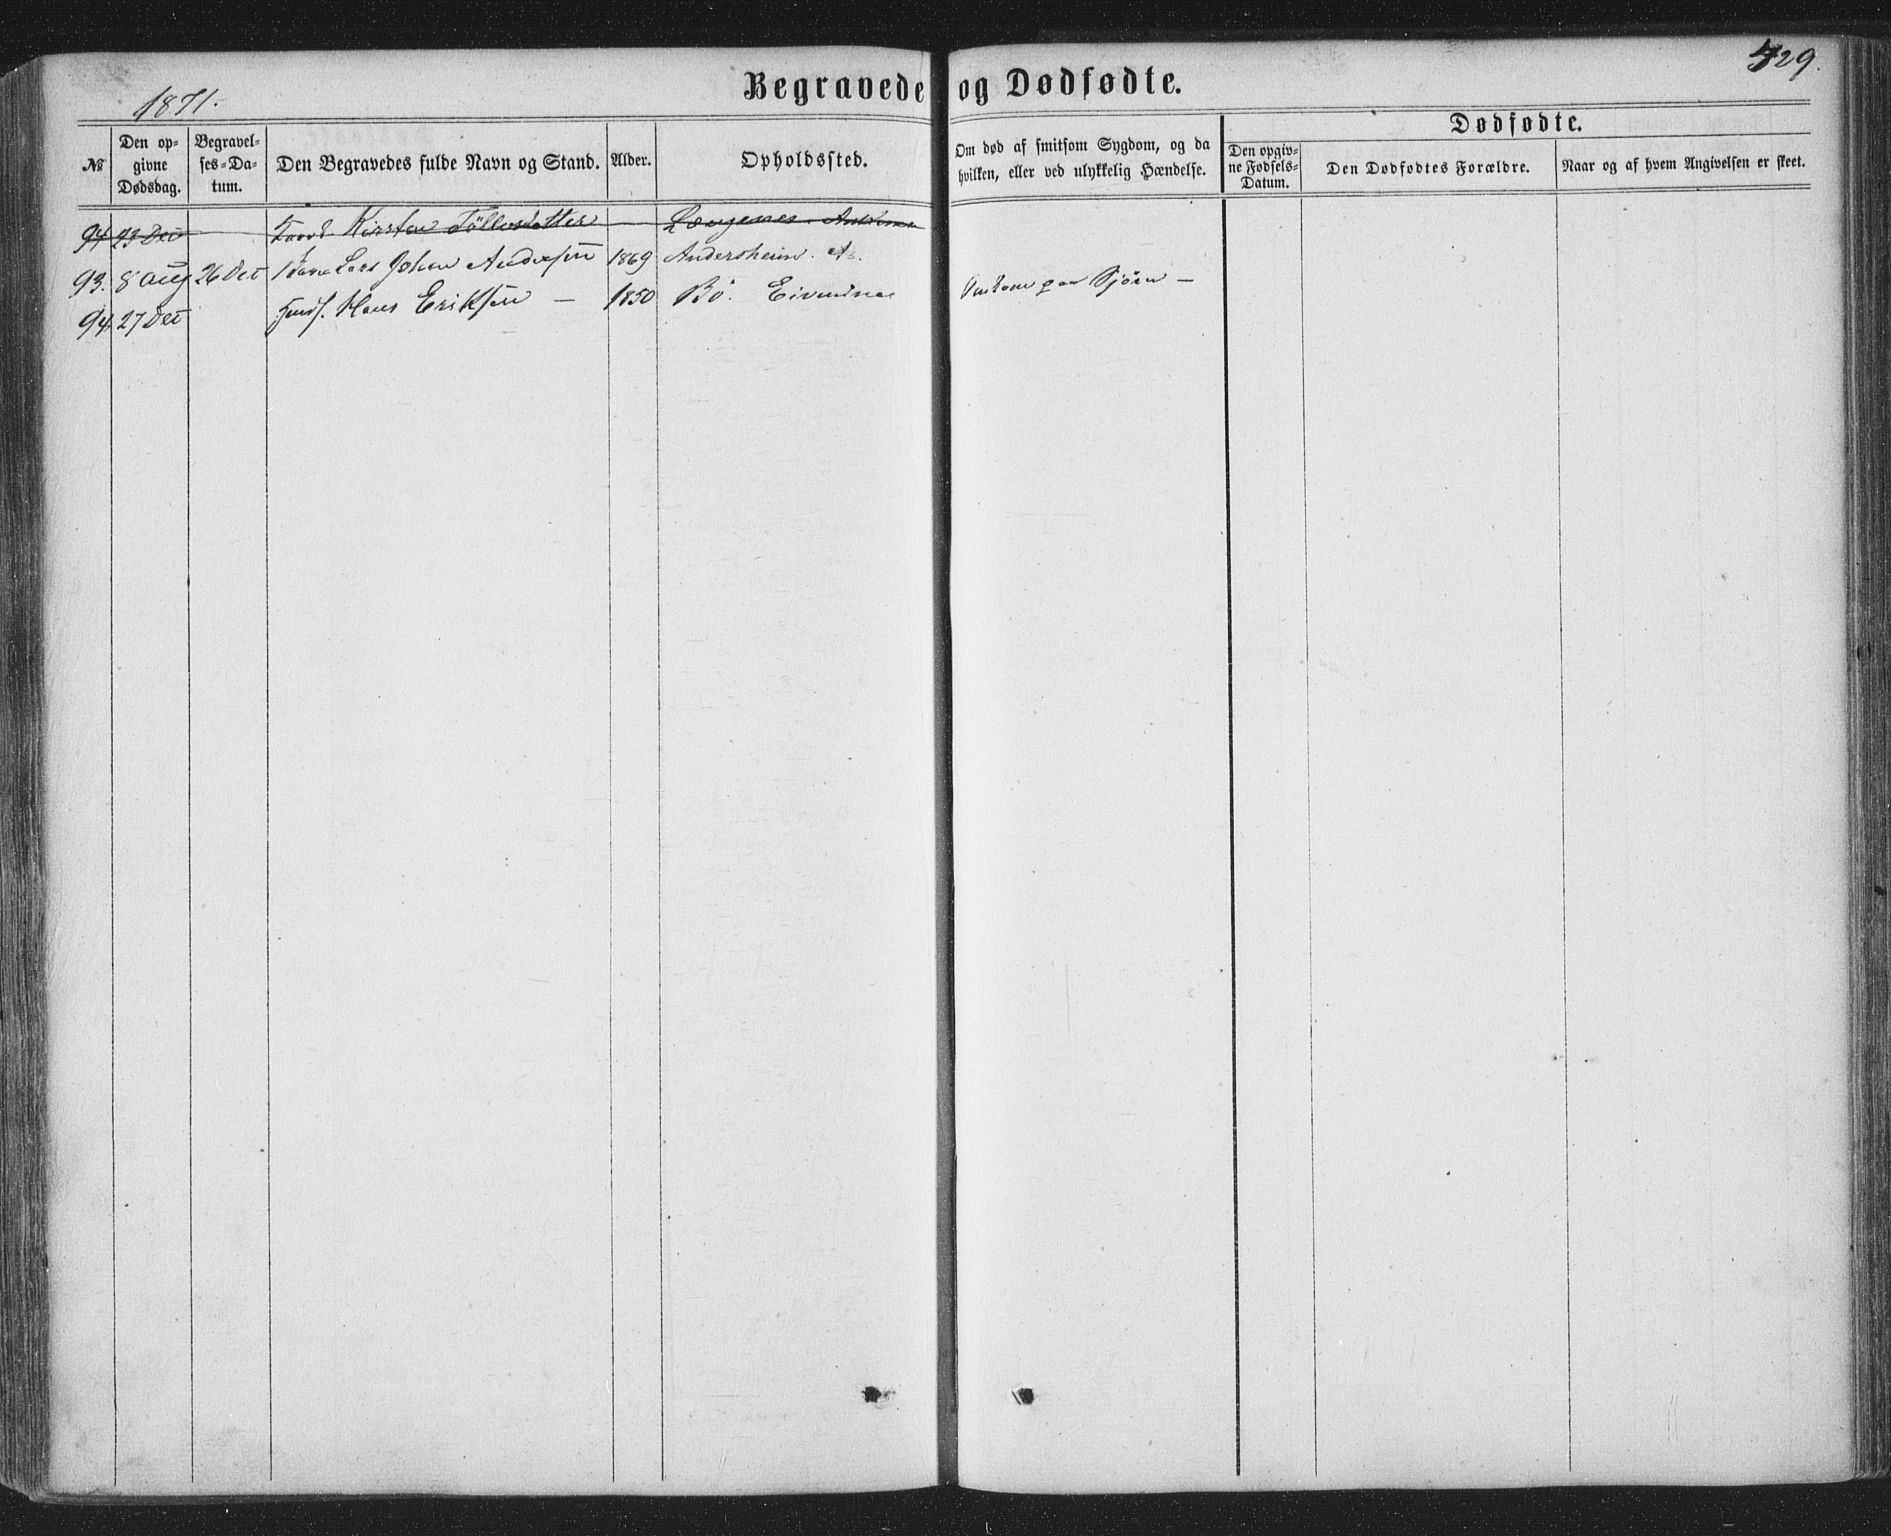 Begravede og Dødfødte.
1871.
429.
Dødfødte.
No
Den opgivne Dødsdag.
Begravelses-Datum.
Den Begravedes fulde Navn og Stand.
Alder.
Opholdssted.
Om død af smitsom Sygdom, og da hvilken, eller ved ulykkelig Hændelse.
Den opgivne Fødsels-Datum.
Den Dødfødtes Forældre.
Naar og af hvem Angivelsen er skeet.
94 23 Dec Kirsten
93. 8 Aug 26 Dec Barn Lars Johan Andersen 1869 Andersheim.
94. 27 Dec Hans Eriksen — 1850 Bö. Omkom paa Sjøen —